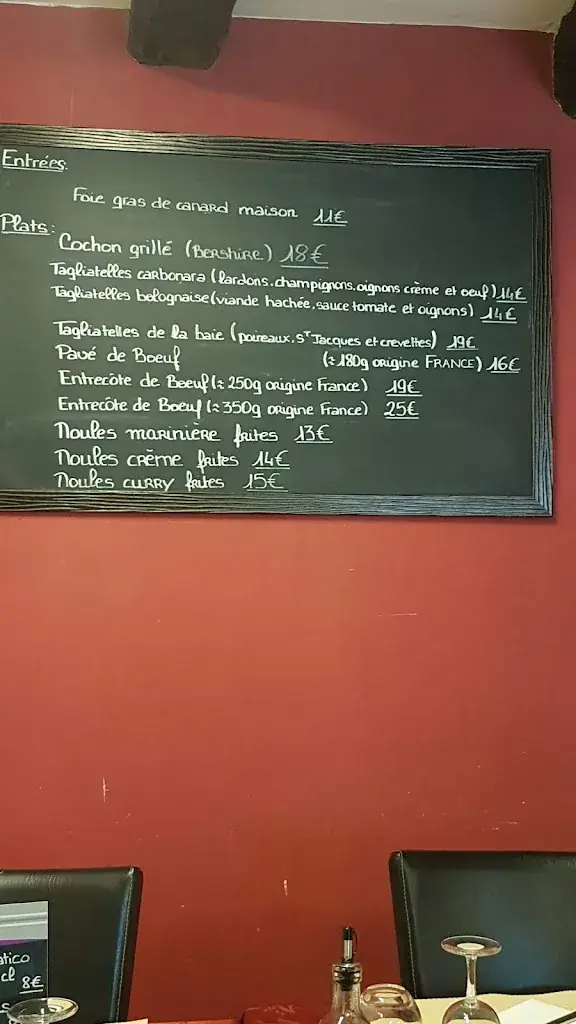 Entrées:
Foie gras de canard maison 11€
Plats:
Cochon grillé (Bershire) 18€
Tagliatelles carbonara (lardons, champignons, oignons crème et oeuf) 14€
Tagliatelles bolognaise (viande hachée, sauce tomate et oignons) 14€
Tagliatelles de la baie (poireaux, St Jacques et crevettes) 19€
Pavé de Boeuf (≈180g origine FRANCE) 16€
Entrecôte de Boeuf (≈ 250g origine France) 19€
Entrecôte de Boeuf (≈ 350g origine France) 25€
Moules marinière frites 13€
Moules crème frites 14€
Moules curry frites 15€
atico
cl 8€